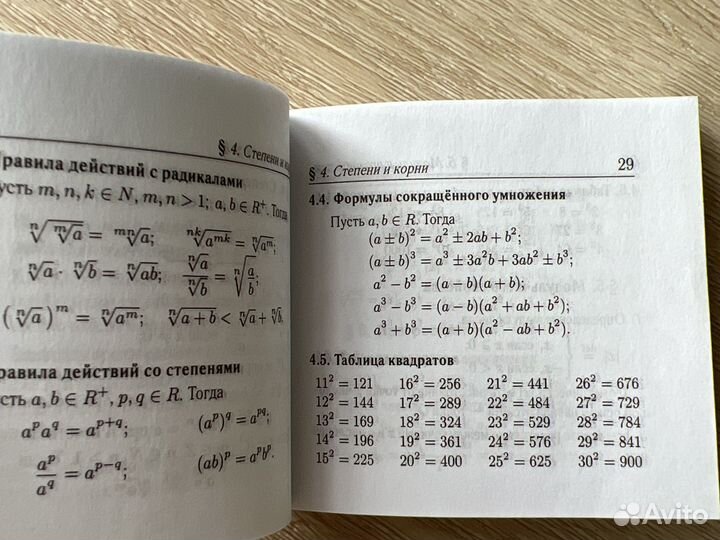 § 4. Степени и
равила действий с радикалами
усть m, n, k ∈ N, m, n > 1; a, b ∈ R⁺. Тогда
ⁿ√(ᵐ√a) = ᵐⁿ√a; ⁿᵏ√(aᵐᵏ) = ⁿ√(aᵐ);
ⁿ√a · ⁿ√b = ⁿ√(ab); ⁿ√a / ⁿ√b = ⁿ√(a/b);
(ⁿ√a)ᵐ = ⁿ√(aᵐ); ⁿ√(a + b) < ⁿ√a + ⁿ√b.
равила действий со степенями
сть a, b ∈ R⁺, p, q ∈ R. Тогда
aᵖa^q = a^(p+q); (aᵖ)^q = a^(pq);
aᵖ / a^q = a^(p−q); (ab)ᵖ = aᵖbᵖ.
§ 4. Степени и корни 29
4.4. Формулы сокращённого умножения
Пусть a, b ∈ R. Тогда
(a ± b)² = a² ± 2ab + b²;
(a ± b)³ = a³ ± 3a²b + 3ab² ± b³;
a² − b² = (a − b)(a + b);
a³ − b³ = (a − b)(a² + ab + b²);
a³ + b³ = (a + b)(a² − ab + b²).
4.5. Таблица квадратов
11² = 121 16² = 256 21² = 441 26² = 676
12² = 144 17² = 289 22² = 484 27² = 729
13² = 169 18² = 324 23² = 529 28² = 784
14² = 196 19² = 361 24² = 576 29² = 841
15² = 225 20² = 400 25² = 625 30² = 900
Avito